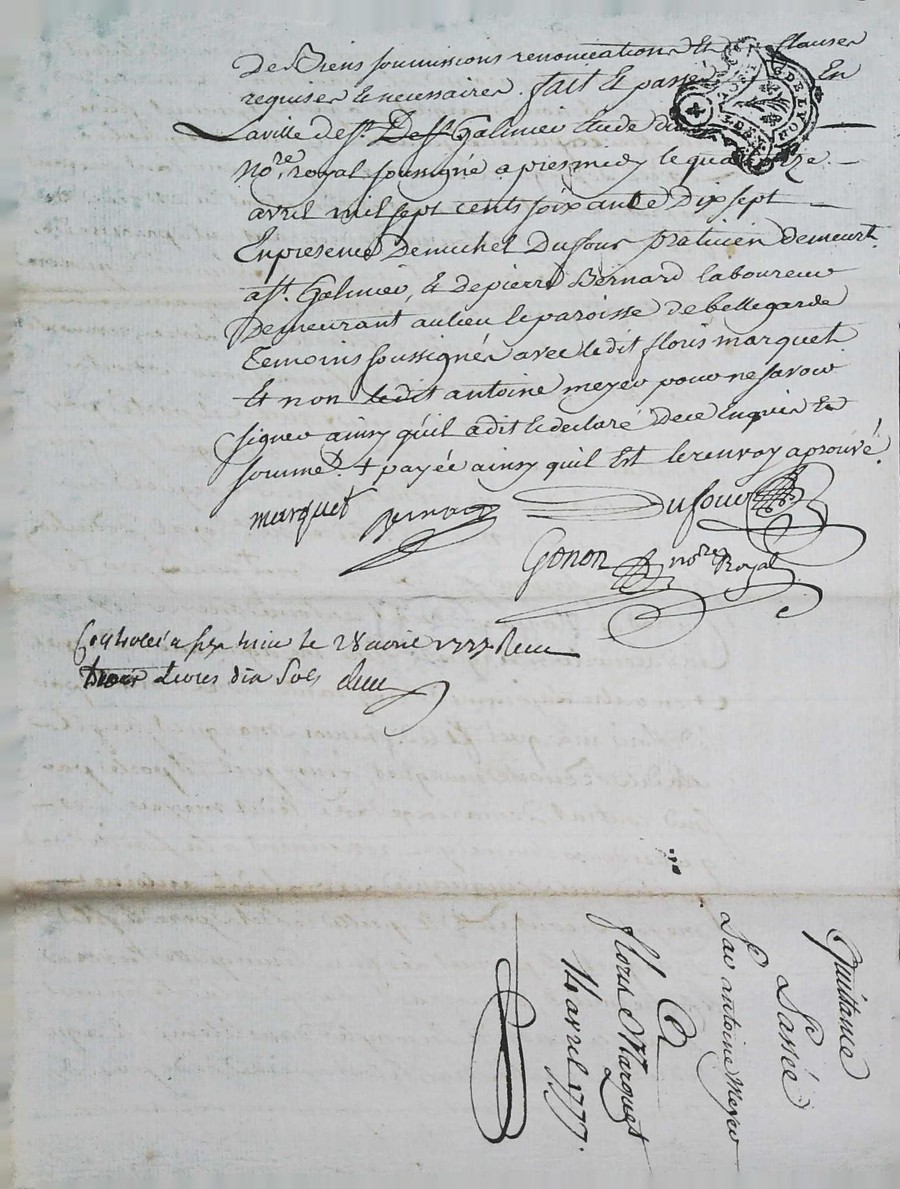 De Biens soumissions renonciations Et clauses
requises Et necessaires. fait Et passé En
Laville de st. Galmier Etude du
Nore. royal soussigné apres midy le quatorze
avril mil sept cents soixante Dix sept
En presence De michel Dufour praticien demeurt.
a st. Galmier, Et de pierre Bernard laboureur
Demeurant au lieu Et paroisse de bellegarde
temoins soussignés avec ledit floris marquet
Et non ledit antoine meyer pour ne savoir
signer ainsy qu'il a dit Et declaré De ce Enquis Et
sommé. + payée ainsy quil Est le renvoy aprouvé
marquet Bernard Dufour
Gonon nore Royal
le 28 avril 1777 Recu
Livres dix sols
DE LYON
Quittance
Passée
Par antoine Meyer
A
floris Marquet
14 avril 1777.